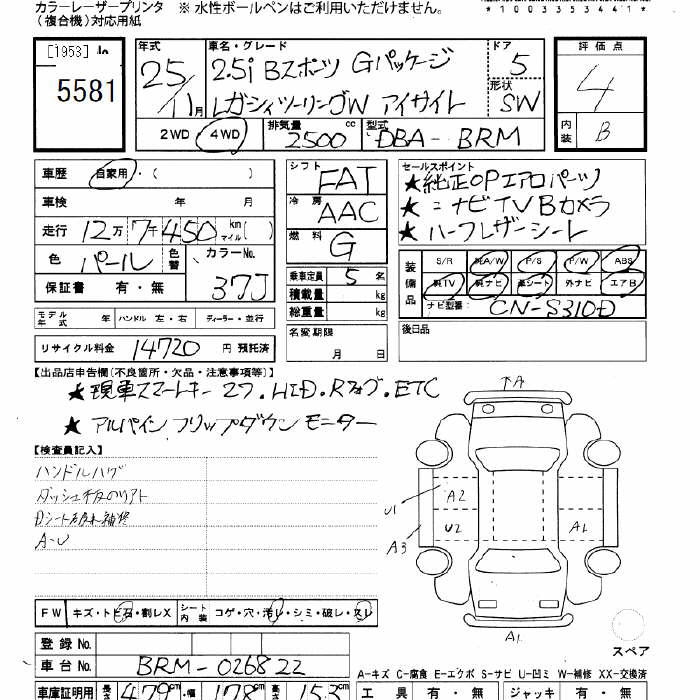 カラーレーザープリンタ ※ 水性ボールペンはご利用いただけません。
(複合機)対応用紙
*1003353441*
[1953]
5581
年式 車名・グレード ドア 評価点
25 2.5i Bスポーツ Gパッケージ 5 4
11月 レガシィツーリングW アイサイト 形状 SW
2WD・4WD 排気量 2500 cc 型式 DBA-BRM 内装 B
車歴 自家用・( )
車検 年 月
走行 12万7千450 km マイル( )
色 パール 色替 カラーNo. 37J
保証書 有・無
シフト FAT
冷房 AAC
燃料 G
乗車定員 5 名
積載量 kg
総重量 kg
名変期限 月 日
セールスポイント
★純正OPエアロパーツ
★ナビTV Bカメラ
★ハーフレザーシート
装備品 S/R 純A/W P/S P/W ABS
純TV 純ナビ 革シート 外ナビ エアB
ナビ型番: CN-S310D
後日品
モデル年式 年 ハンドル 左・右 ディーラー・並行
リサイクル料金 14720 円 預託済
【出品店申告欄(不良箇所・欠品・注意事項等)】
★現車スマートキー 2ケ.HID.Rフォグ.ETC
★アルパイン フリップダウン モニター
【検査員記入】
ハンドルハゲ
A-U
A
U1 A2
A3 U2 A1
A1
スペア
FW キズ・トビ石・割レX シート内装 コゲ・穴・汚レ・シミ・破レ・スレ
登録No.
車台No. BRM-026822
A-キズ C-腐食 E-エクボ S-サビ U-凹ミ W-補修 XX-交換済
車庫証明用 長さ 479cm・幅 178cm・高さ 153cm
工具 有・無 ジャッキ 有・無